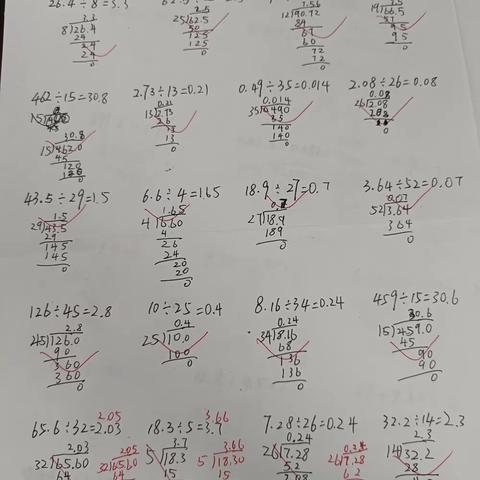 26.4÷8=3.3
3.3
8 26.4
24
24
24
0
2.5
25 62.5
50
125
125
0
7.56
12 90.72
84
67
60
72
72
0
3.5
19 66.5
57
95
95
0
462÷15=30.8
30.8
15 462.0
45
120
120
0
2.73÷13=0.21
0.21
13 2.73
26
13
13
0
0.49÷35=0.014
0.014
35 0.490
35
140
140
0
2.08÷26=0.08
0.08
26 2.08
208
0
43.5÷29=1.5
1.5
29 43.5
29
145
145
0
6.6÷4=1.65
1.65
4 6.60
4
26
24
20
20
0
18.9÷27=0.7
0.7
27 18.9
189
0
3.64÷52=0.07
0.07
52 3.64
364
0
126÷45=2.8
2.8
45 126.0
90
360
360
0
10÷25=0.4
0.4
25 10.0
100
0
8.16÷34=0.24
0.24
34 8.16
68
136
136
0
459÷15=30.6
30.6
15 459.0
45
90
90
0
2.05
65.6÷32=2.03
2.03
32 65.60
64
2.05
32 65.60
64
3.66
18.3÷5=3.7
3.7
5 18.3
15
3.66
5 18.30
15
7.28÷26=0.24
0.24
26 7.28
52
208
0.24
26 7.28
52
32.2÷14=2.3
2.3
14 32.2
28